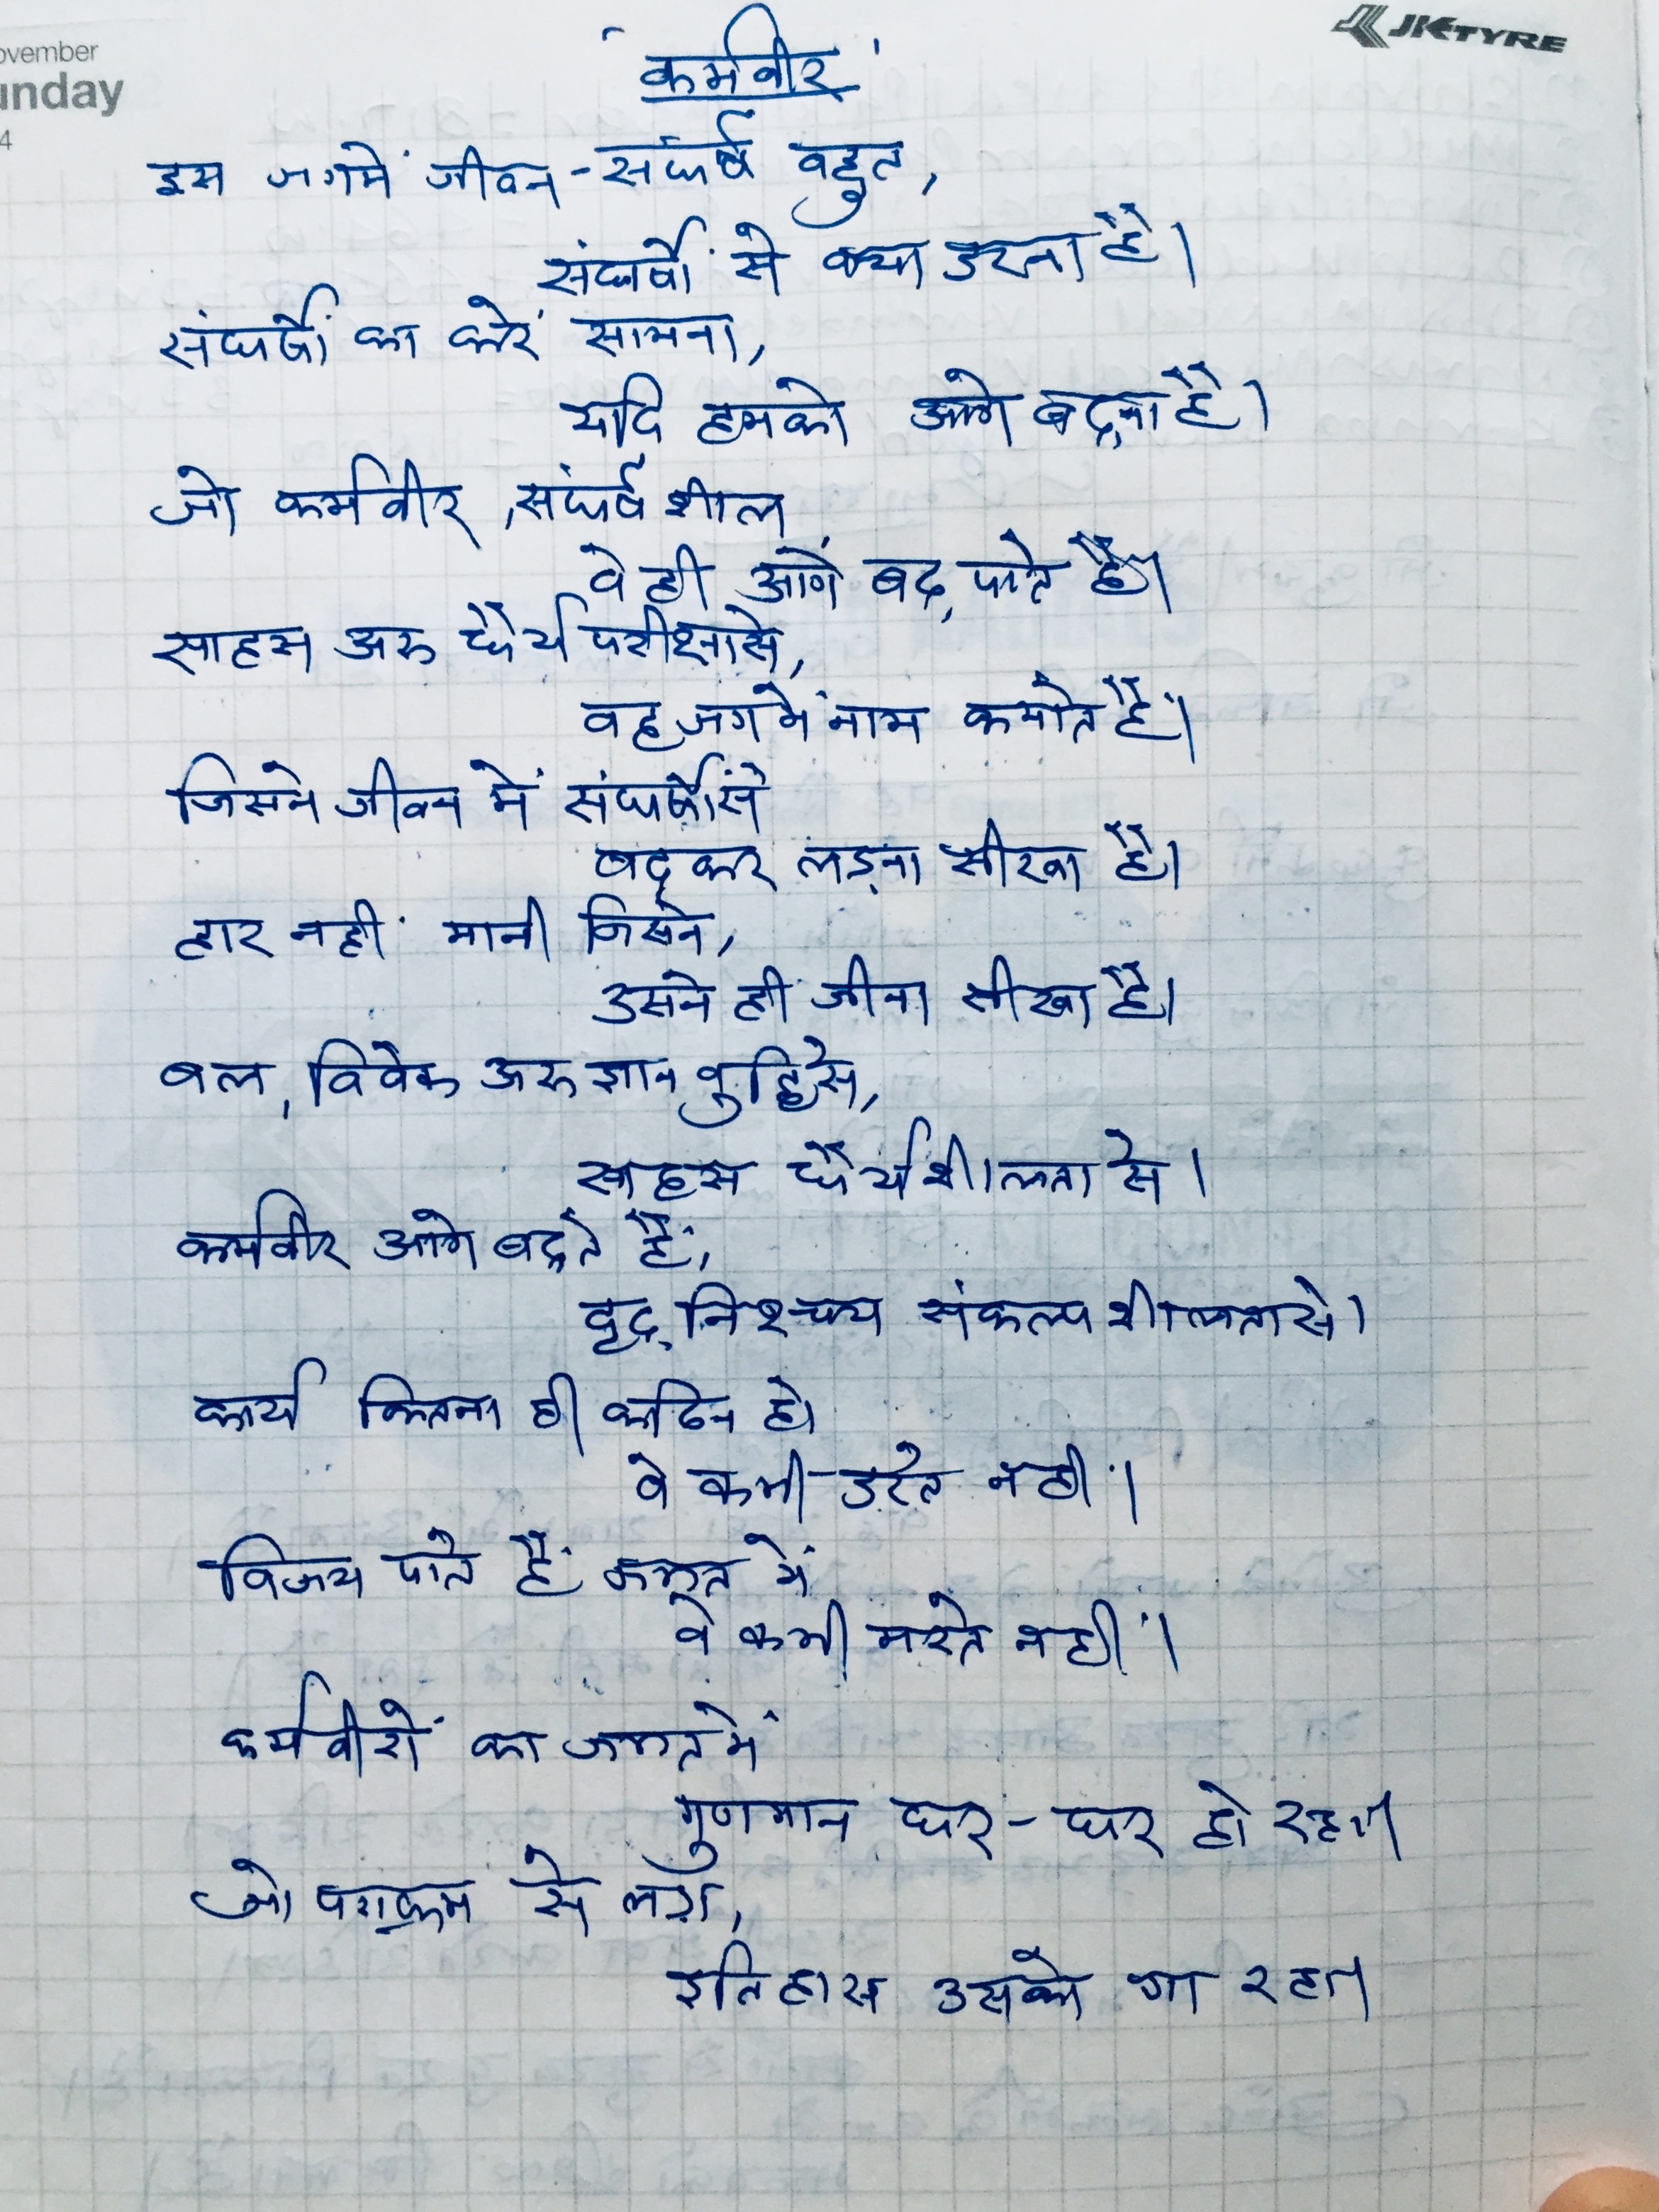 ovember
unday
4
JK TYRE
'कर्मवीर'
इस जगमें जीवन-संघर्ष बहुत,
संघर्षों से क्या डरना है।
संघर्षों का करें सामना,
यदि हमको आगे बढ़ना है।
जो कर्मवीर, संघर्ष शील
वे ही आगे बढ़ पाते हैं।
साहस अरु धैर्य परीक्षासे,
वह जग में नाम कमाते हैं।
जिसने जीवन में संघर्षोंसे
बढ़कर लड़ना सीखा है।
हार नहीं मानी जिसने,
उसने ही जीना सीखा है।
बल, विवेक अरु ज्ञान बुद्धिसे,
साहस धैर्यशीलता से।
कर्मवीर आगे बढ़ते हैं,
दृढ़ निश्चय संकल्प शीलतासे।
कार्य कितना ही कठिन हो
वे कभी डरते नहीं।
विजय पाते हैं जगत में
वे कभी मरते नहीं।
कर्मवीरों का जगत में
गुणगान घर-घर हो रहा।
जो पराक्रम से लड़ा,
इतिहास उसको गा रहा।